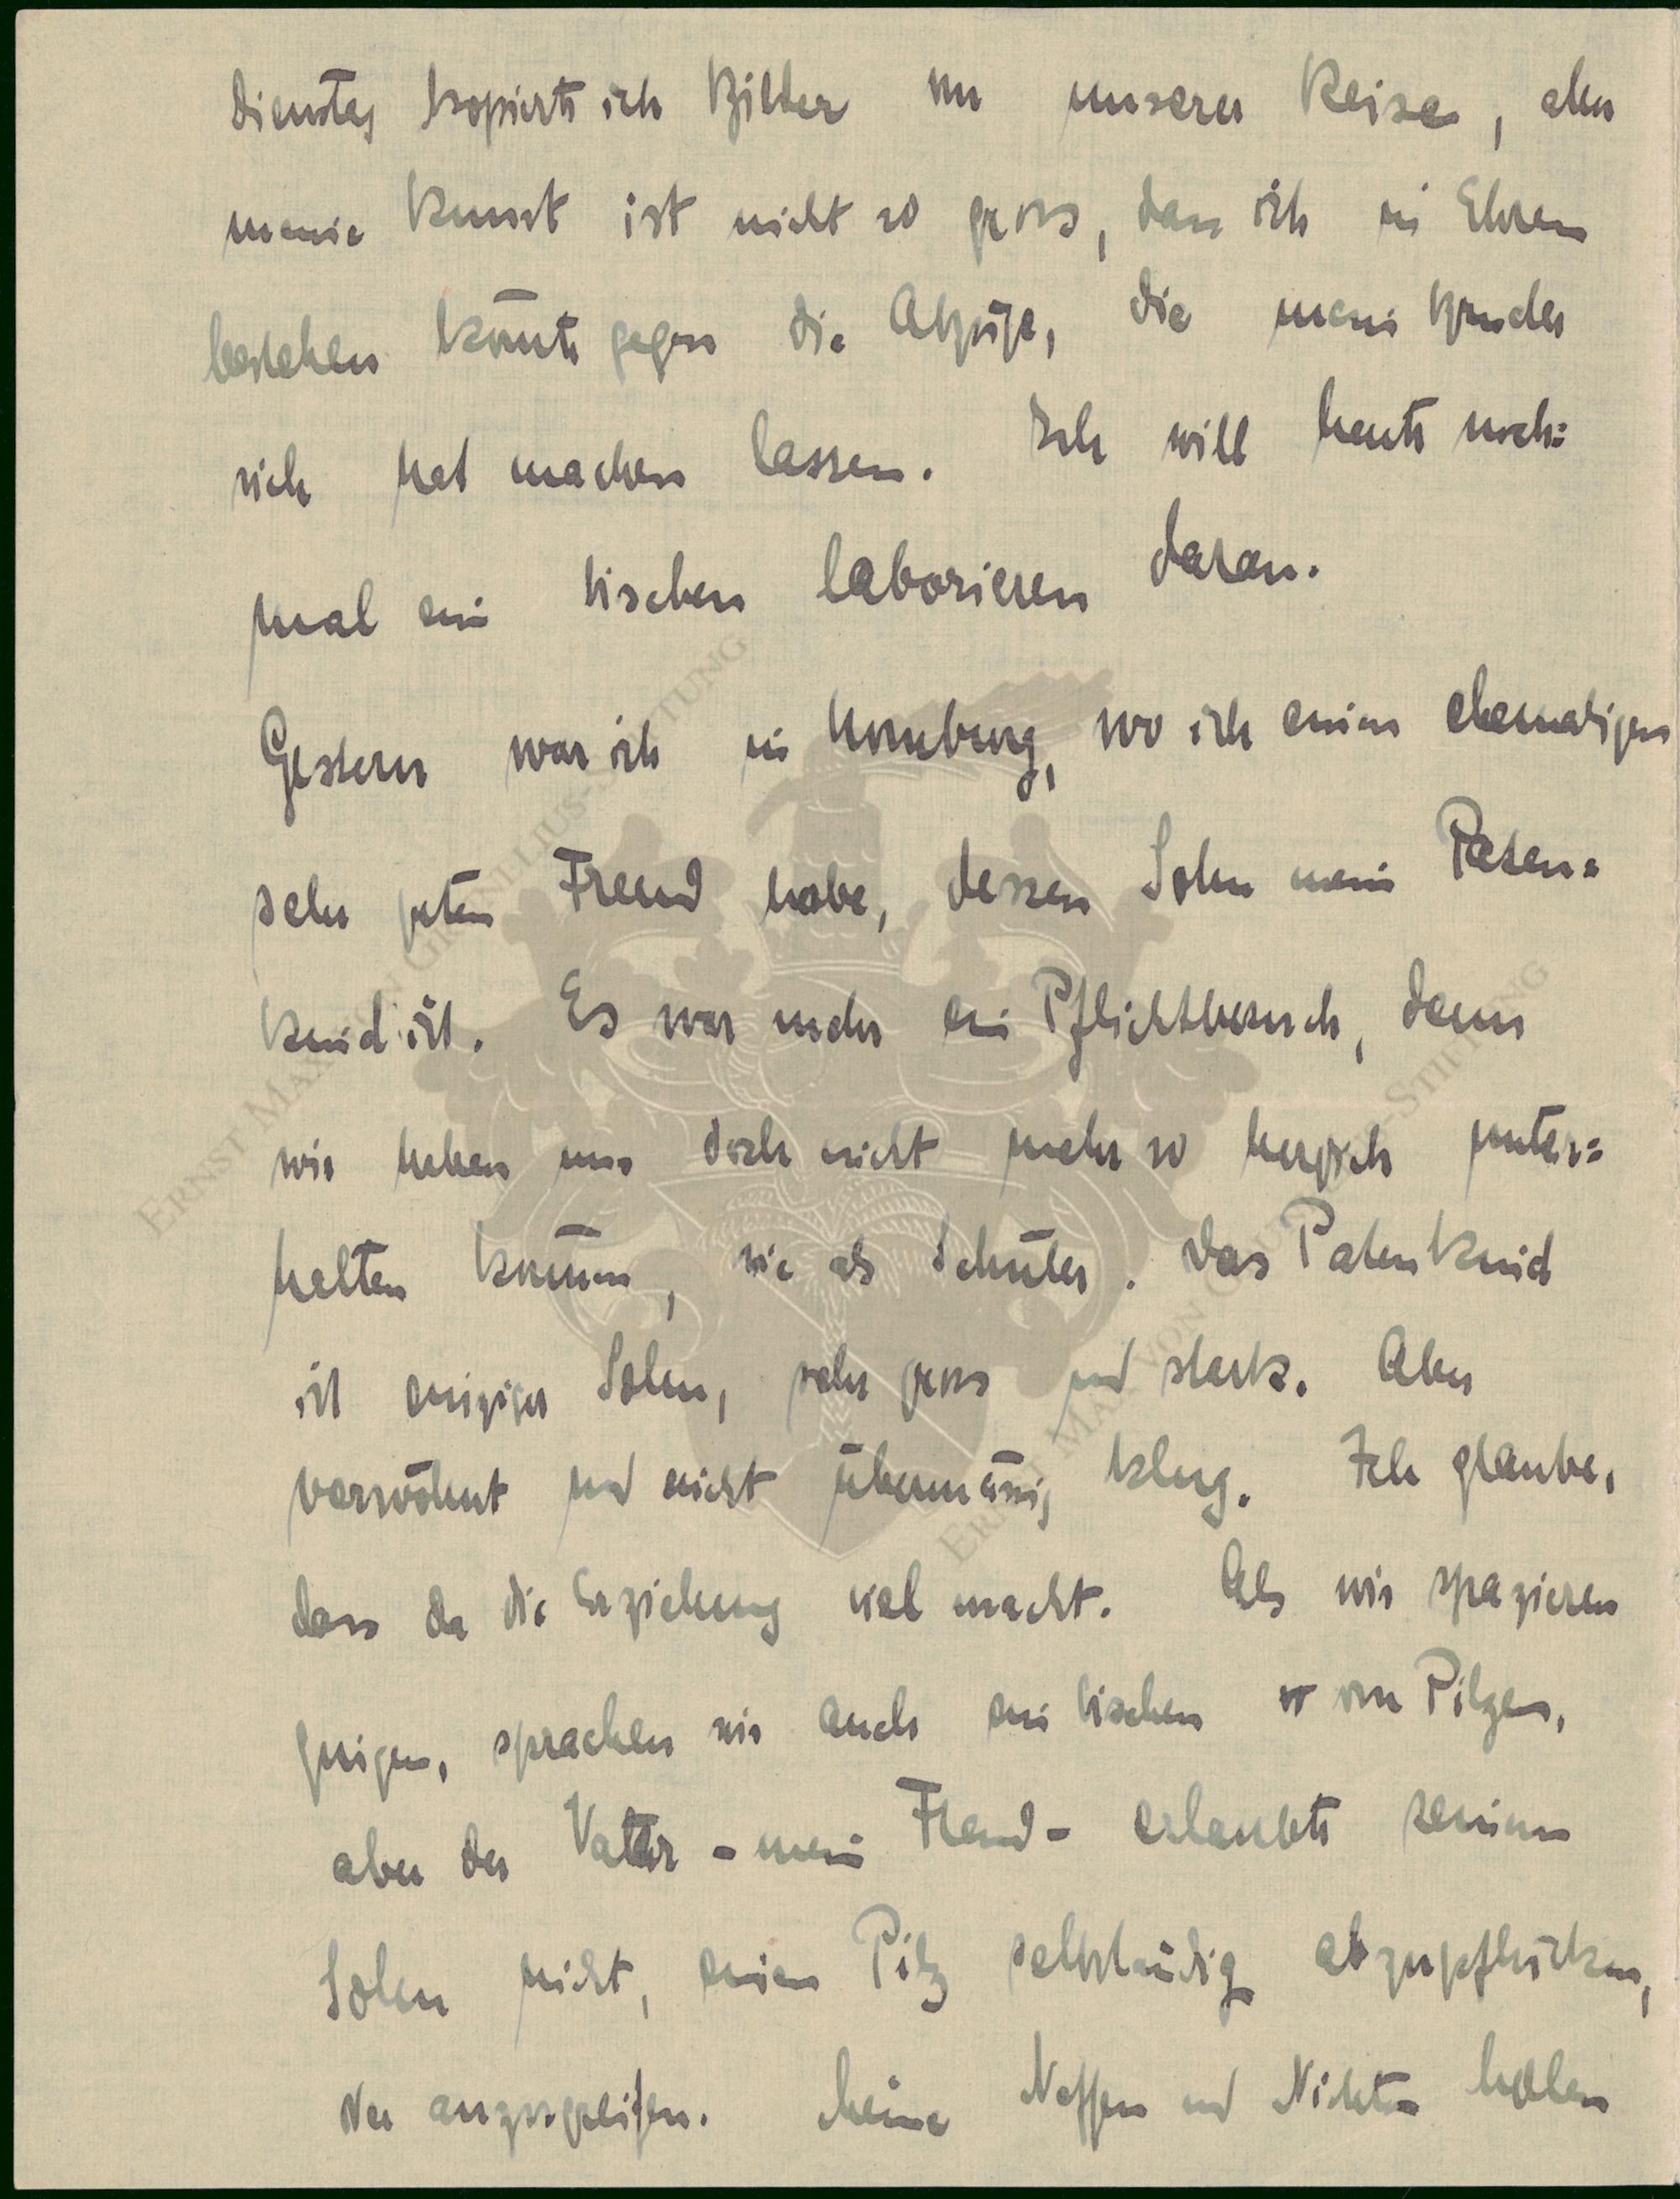 Dienstes kopierte ich Bilder von unserer Reise, aber
meine Kunst ist nicht so gross, dass ich in Ehren
bestehen könnte gegen die Abzüge, die mein Bruder
sich hat machen lassen. Ich will heute noch=
mal ein bischen laborieren daran.
Gestern war ich in Homburg, wo ich einen ehemaligen
sehr guten Freund habe, dessen Sohn mein Paten=
kind ist. Es war mehr ein Pflichtbesuch, denn
wir haben uns doch nicht mehr so herzlich unter=
halten können, wie als Schüler. Das Patenkind
ist einziger Sohn, sehr gross und stark. Aber
verwöhnt und nicht übermässig klug. Ich glaube,
dass da die Erziehung viel macht. Als wir spazieren
gingen, sprachen wir auch ein bischen von Pilzen,
aber der Vater - mein Freund - erlaubte seinem
Sohn nicht, einen Pilz selbständig abzupflücken,
oder anzugreifen. Meine Neffen und Nichten haben
ERNST MAX VON GRUNELIUS-STIFTUNG
ERNST MAX VON GRUNELIUS-STIFTUNG